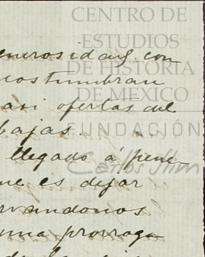 CENTRO DE
ESTUDIOS
DE HISTORIA
DE MEXICO
FUNDACIÓN
Carlos Slim
nerosidad con
acostumbran
ofertas del
bajas.
llegado á pene
que es dejar
rvandonos
una prorroga